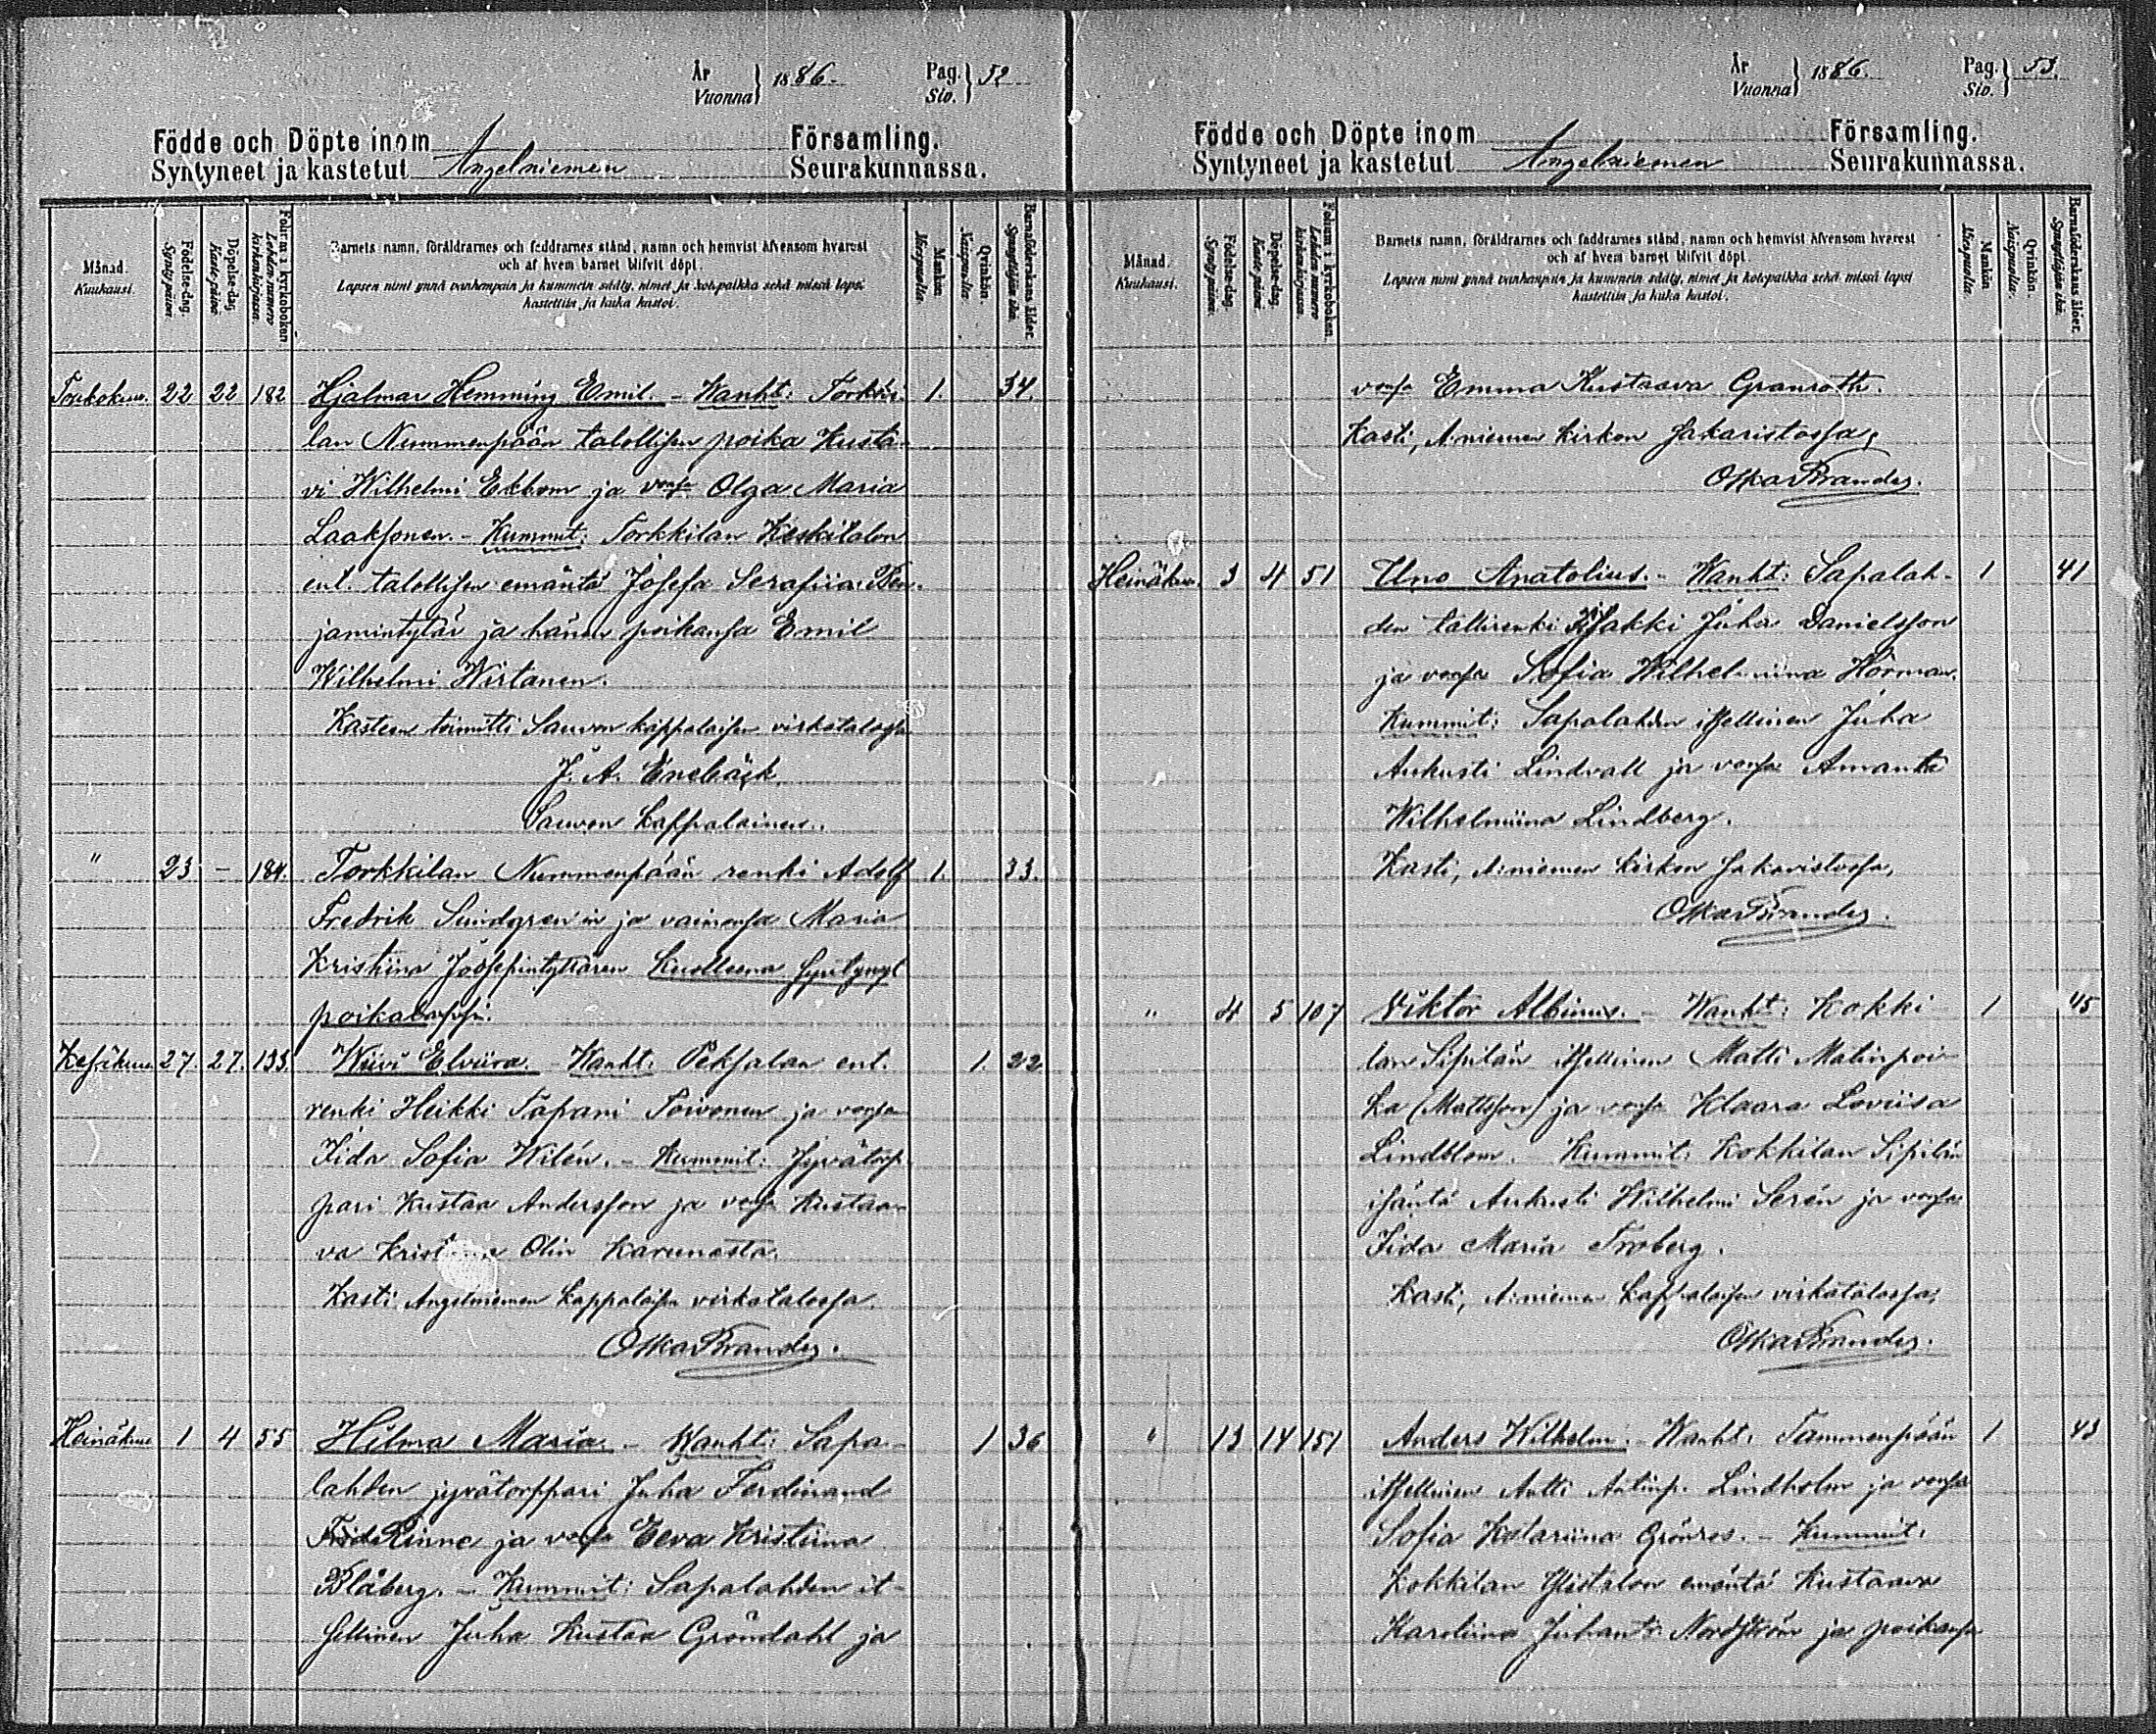 År
Vuonna } 1886. Pag.
Siv. } 52
Födde och Döpte inom Församling.
Syntyneet ja kastetut Angelniemen Seurakunnassa.
Månad.
Kuukausi.
Födelse-dag.
Syntypäivä.
Döpelse-dag.
Kaste-päivä.
Folium i kyrkoboken
Lehden numero
kirkonkirjassa.
Barnets namn, föräldrarnes och faddrarnes stånd, namn och hemvist äfvensom hvarest
och af hvem barnet blifvit döpt.
Lapsen nimi ynnä vanhempain ja kummein sääty, nimet ja kotopaikka sekä missä lapsi
kastettiin ja kuka kastoi.
Mankön.
Miespuolia.
Qvinkön.
Naispuolia.
Barnaföderskans ålder.
Synnyttäjän ikä.
Toukokuu. 22 22 182 Hjalmar Hemming Emil. - Wanht: Torkki- 1. 34.
lan Nummenpään talollisen poika Kusta-
vi Wilhelmi Ekbom ja vmsa Olga Maria
Laaksonen. - Kummit: Torkkilan Keskitalon
ent. talollisen emäntä Josefa Serafiia Ben-
jamintytär ja hänen poikansa Emil
Wilhelmi Wirtanen.
Kasteen toimitti Sauvon kappalaisen virkatalossa
J. A. Enebäck
Sauvon kappalainen.
" 23 - 184. Torkkilan Nummenpään renki Adolf 1. 33.
Fredrik Sundgren'in ja vaimonsa Maria
Kristiina Joosepintyttären kuolleena syntynyt
poikalapsi.
Kesäkuu 27. 27. 133. Wiivi Elviira. - Wanht: Peksalan ent. 1. 22
renki Heikki Tapani Toivonen ja vmsa
Iida Sofia Wilén. - Kummit: Jyvätorp-
pari Kustaa Andersson ja vmsa Kustaa-
va Olin Karunasta.
Kasti Angelniemen kappalaisen virkatalossa
Oskar Brander.
Heinäkuu 1 4 55 Hilma Maria. - Wanht: Sapa- 1 36
lahden jyvätorppari Juha Ferdinand
Rinne ja vmsa Eeva Kristiina
Blåberg. - Kummit: Sapalahden it-
sellinen Juha Kustaa Gröndahl ja
År
Vuonna } 1886. Pag.
Siv. } 53.
Födde och Döpte inom Församling.
Syntyneet ja kastetut Angelniemen Seurakunnassa.
Månad.
Kuukausi.
Födelse-dag.
Syntypäivä.
Döpelse-dag.
Kaste-päivä.
Folium i kyrkoboken
Lehden numero
kirkonkirjassa.
Barnets namn, föräldrarnes och faddrarnes stånd, namn och hemvist äfvensom hvarest
och af hvem barnet blifvit döpt.
Lapsen nimi ynnä vanhempain ja kummein sääty, nimet ja kotopaikka sekä missä lapsi
kastettiin ja kuka kastoi.
Mankön.
Miespuolia.
Qvinkön.
Naispuolia.
Barnaföderskans ålder.
Synnyttäjän ikä.
vmsa Emma Kustaava Granroth.
Kasti, A:niemen kirkon sakaristossa,
Oskar Brander.
Heinäkuu. 3 4 51 Uno Anatolius. - Wanht: Sapalah- 1 41
den tallirenki Juha Danielsson
ja vmsa Sofia Wilhelmiina Hörman.
Kummit: Sapalahden itsellinen Juha
Aukusti Lindvall ja vmsa Amanta
Wilhelmiina Lindberg.
Kasti, A:niemen kirkon sakaristossa,
Oskar Brander.
" 4 5 107 Viktor Albinus. - Wanht: Kokki- 1 45
lan Sipilän itsellinen Matti Matinpoi-
ka (Mattsson) ja vmsa Klaara Loviisa
Lindblom. - Kummit: Kokkilan Sipilän
isäntä Aukusti Wilhelmi Serén ja vmsa
Iida Maria Froberg.
Kasti, A:niemen kappalaisen virkatalossa,
Oskar Brander.
" 13 14 151 Anders Wilhelm. - Wanht: Tammenpään 1 43
itsellinen Antti Antinp. Lindholm ja vmsa
Sofia Katariina Grönros. - Kummit:
Kokkilan Ylistalon emäntä Kustaava
Karoliina Juhant: Nordström ja poikansa